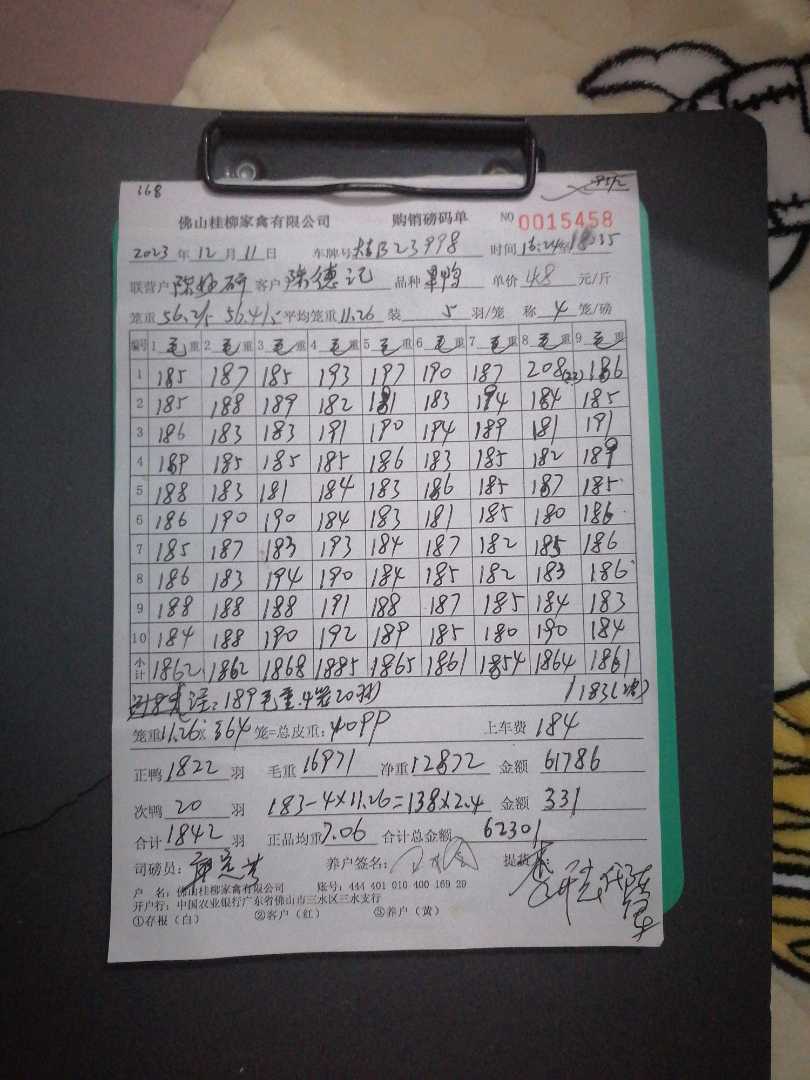 168
佛山桂柳家禽有限公司 购销磅码单 NO 0015458
2023 年 12 月 11 日 车牌号 B23998 时间
联营户 客户 陈德记 品种 单价 4.8 元/斤
笼重 56.2/5 56.4/5 平均笼重 11.26 装 5 羽/笼 称 4 笼/磅
编号 1 毛 重 2 毛 重 3 毛 重 4 毛 重 5 毛 重 6 毛 重 7 毛 重 8 毛 重 9 毛 重
1 185 187 185 193 197 190 187 208(22) 186
2 185 188 189 182 181 183 194 184 185
3 186 183 183 191 190 194 189 181 191
4 189 185 185 185 186 183 185 182 189
5 188 183 181 184 183 186 185 187 185
6 186 190 190 184 183 181 185 180 186
7 185 187 183 193 184 187 182 185 186
8 186 183 194 190 184 185 182 183 186
9 188 188 188 191 188 187 185 184 183
10 184 188 190 192 189 185 180 190 184
小计 1862 1862 1868 1885 1865 1861 1854 1864 1861
189毛重.4笼20羽 183
笼重 11.26 × 364 笼=总皮重: 4099 上车费 184
正鸭 1822 羽 毛重 16971 净重 12872 金额 61786
次鸭 20 羽 183-4×11.26=138×2.4 金额 331
合计 1842 羽 正品均重 7.06 合计总金额 62301
司磅员: 养户签名: 提货
户 名: 佛山桂柳家禽有限公司 账号: 444 401 010 400 169 29
开户行: 中国农业银行广东省佛山市三水区三水支行
①存根(白) ②客户(红) ③养户(黄)